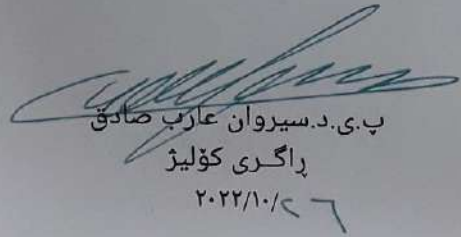 پ.ی.د.سیروان عارب صادق
ڕاگری کۆلیژ
٢٠٢٢/١٠/٢٦